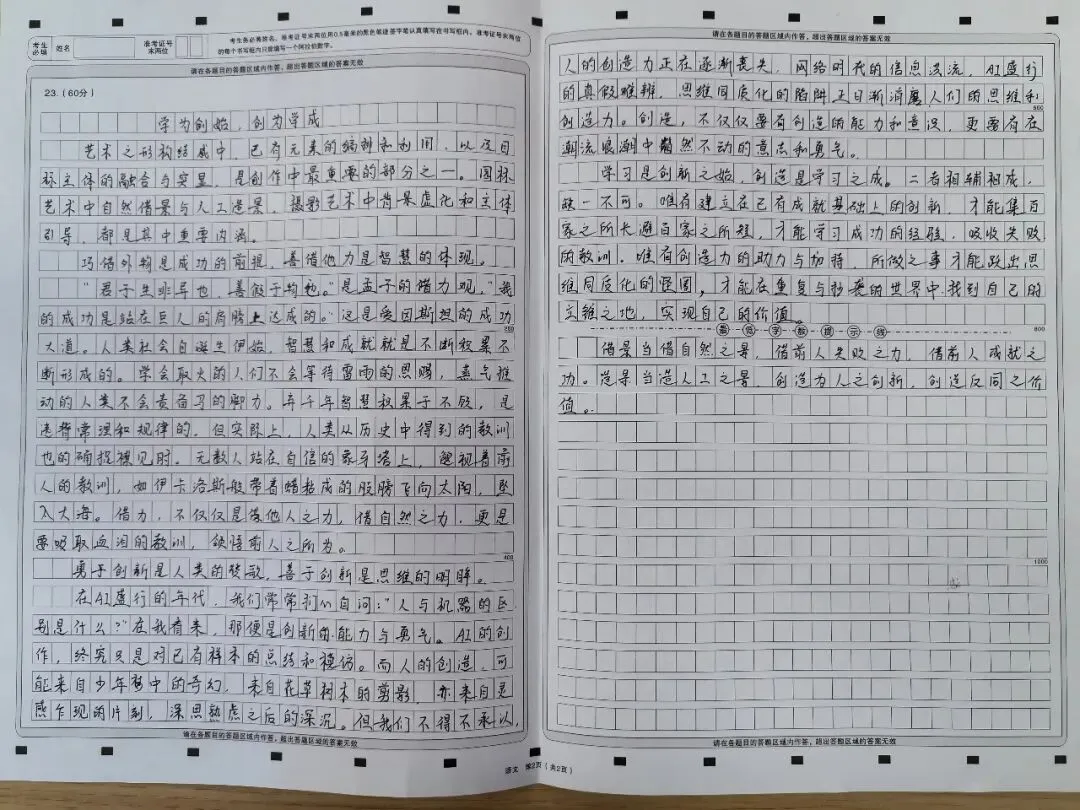 考生必填
姓名
准考证号末两位
考生务必将姓名、准考证号末两位用0.5毫米的黑色签字笔认真填写在书写框内，准考证号末两位
的每个书写框内只能填写一个阿拉伯数字。
请在各题目的答题区域内作答，超出答题区域的答案无效
23.（60分）
学为创始，创为学成
艺术之形构结成中，已有元素的编辑和利用，以及目
标主体的融合与突显，是创作中最重要的部分之一。园林
艺术中自然借景与人工造景，摄影艺术中背景虚化和主体
引导，都是其中重要内涵。
巧借外物是成功的前提，善借他力是智慧的体现。
“君子生非异也，善假于物也。”是孟子的借力观，“我
的成功是站在巨人的肩膀上达成的。”这是爱因斯坦的成功
200
大道。人类社会自诞生伊始，智慧和成就就是不断积累不
断形成的。学会取火的人们不会等待雷雨的恩赐，蒸气推
动的人类不会贵畜马的脚力。弃千年智慧积累于不顾，是
违背常理和规律的。但实际上，人类从历史中得到的教训
也的确捉襟见肘。无数人站在自信的象牙塔上，鄙视着前
人的教训，如伊卡洛斯般带着蜡黏成的翅膀飞向太阳，坠
入大海。借力，不仅仅是借他人之力，借自然之力，更是
要吸取血泪的教训，领悟前人之所为。
400
勇于创新是人类的赞歌，善于创新是思维的明眸。
在AI盛行的年代，我们常常扪心自问：“人与机器的区
别是什么？”在我看来，那便是创新的能力与勇气。AI的创
作，终究只是对已有样本的总结和模仿。而人的创造，可
能来自少年梦中的奇幻，来自花草树木的剪影，亦来自灵
感乍现的片刻，深思熟虑之后的深沉。但我们不得不承认，
请在各题目的答题区域内作答，超出答题区域的答案无效
语文 第2页（共2页）
请在各题目的答题区域内作答，超出答题区域的答案无效
人的创造力正在逐渐丧失，网络时代的信息洪流，AI盛行
的真假难辨，思维同质化的陷阱正日渐消磨人们的思维和
600
创造力。创造，不仅仅要有创造的能力和意识，更要有在
潮流浪潮中岿然不动的意志和勇气。
学习是创新之始，创造是学习之成。二者相辅相成，
缺一不可。唯有建立在已有成就基础上的创新，才能集百
家之所长避百家之所短，才能学习成功的经验，吸收失败
的教训。唯有创造力的助力与加持，所做之事才能跃出思
维同质化的怪圈，才能在重复与抄袭的世界中找到自己的
立锥之地，实现自己的价值。
最低字数提示线
800
借景当借自然之景，借前人失败之力，借前人成就之
功。造景当造人工之景，创造为人之创新，创造反同之价
值。
1000
请在各题目的答题区域内作答，超出答题区域的答案无效